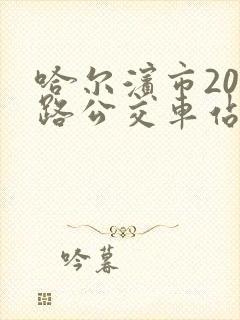 哈尔滨市20
路公交车站
吟暮